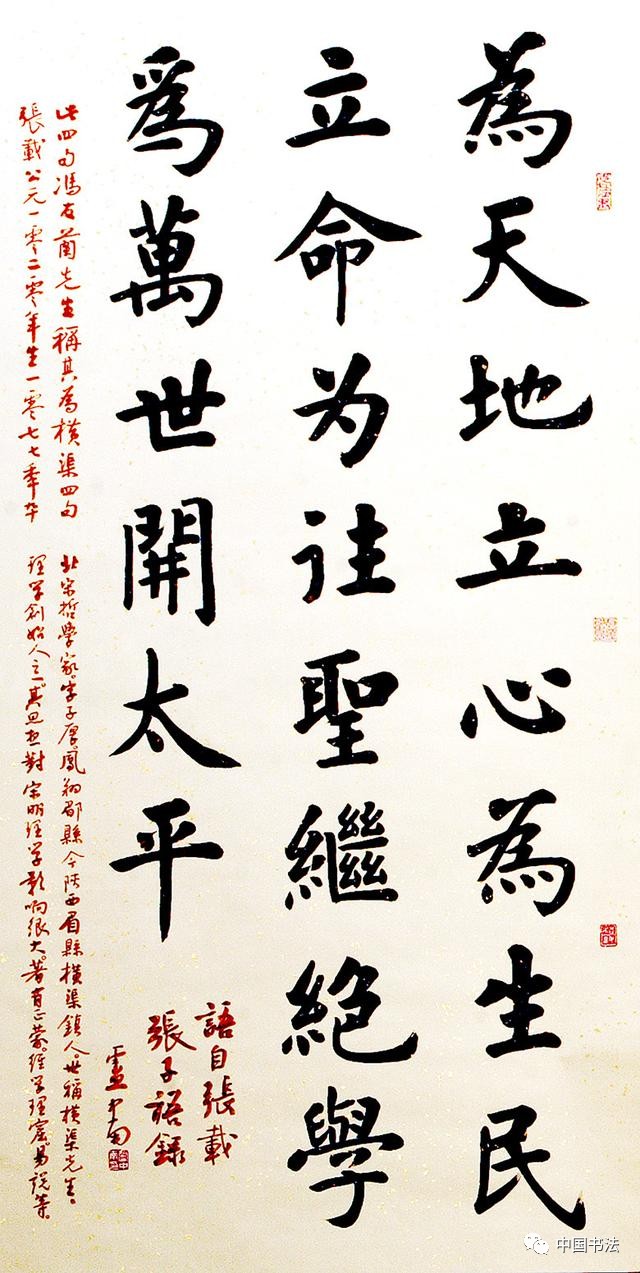 為天地立心為生民
立命为往聖繼絶學
爲萬世開太平
語自張載
張子語録
盧中南
此四句馮友蘭先生稱其為横渠四句
張載公元一零二零年生一零七七年卒
北宋哲學家字子厚鳳翔郿縣今陕西眉縣横渠鎮人世稱横渠先生
理学創始人之一其思想對宋明理学影响很大著有正蒙经学理窟易說等
中国书法